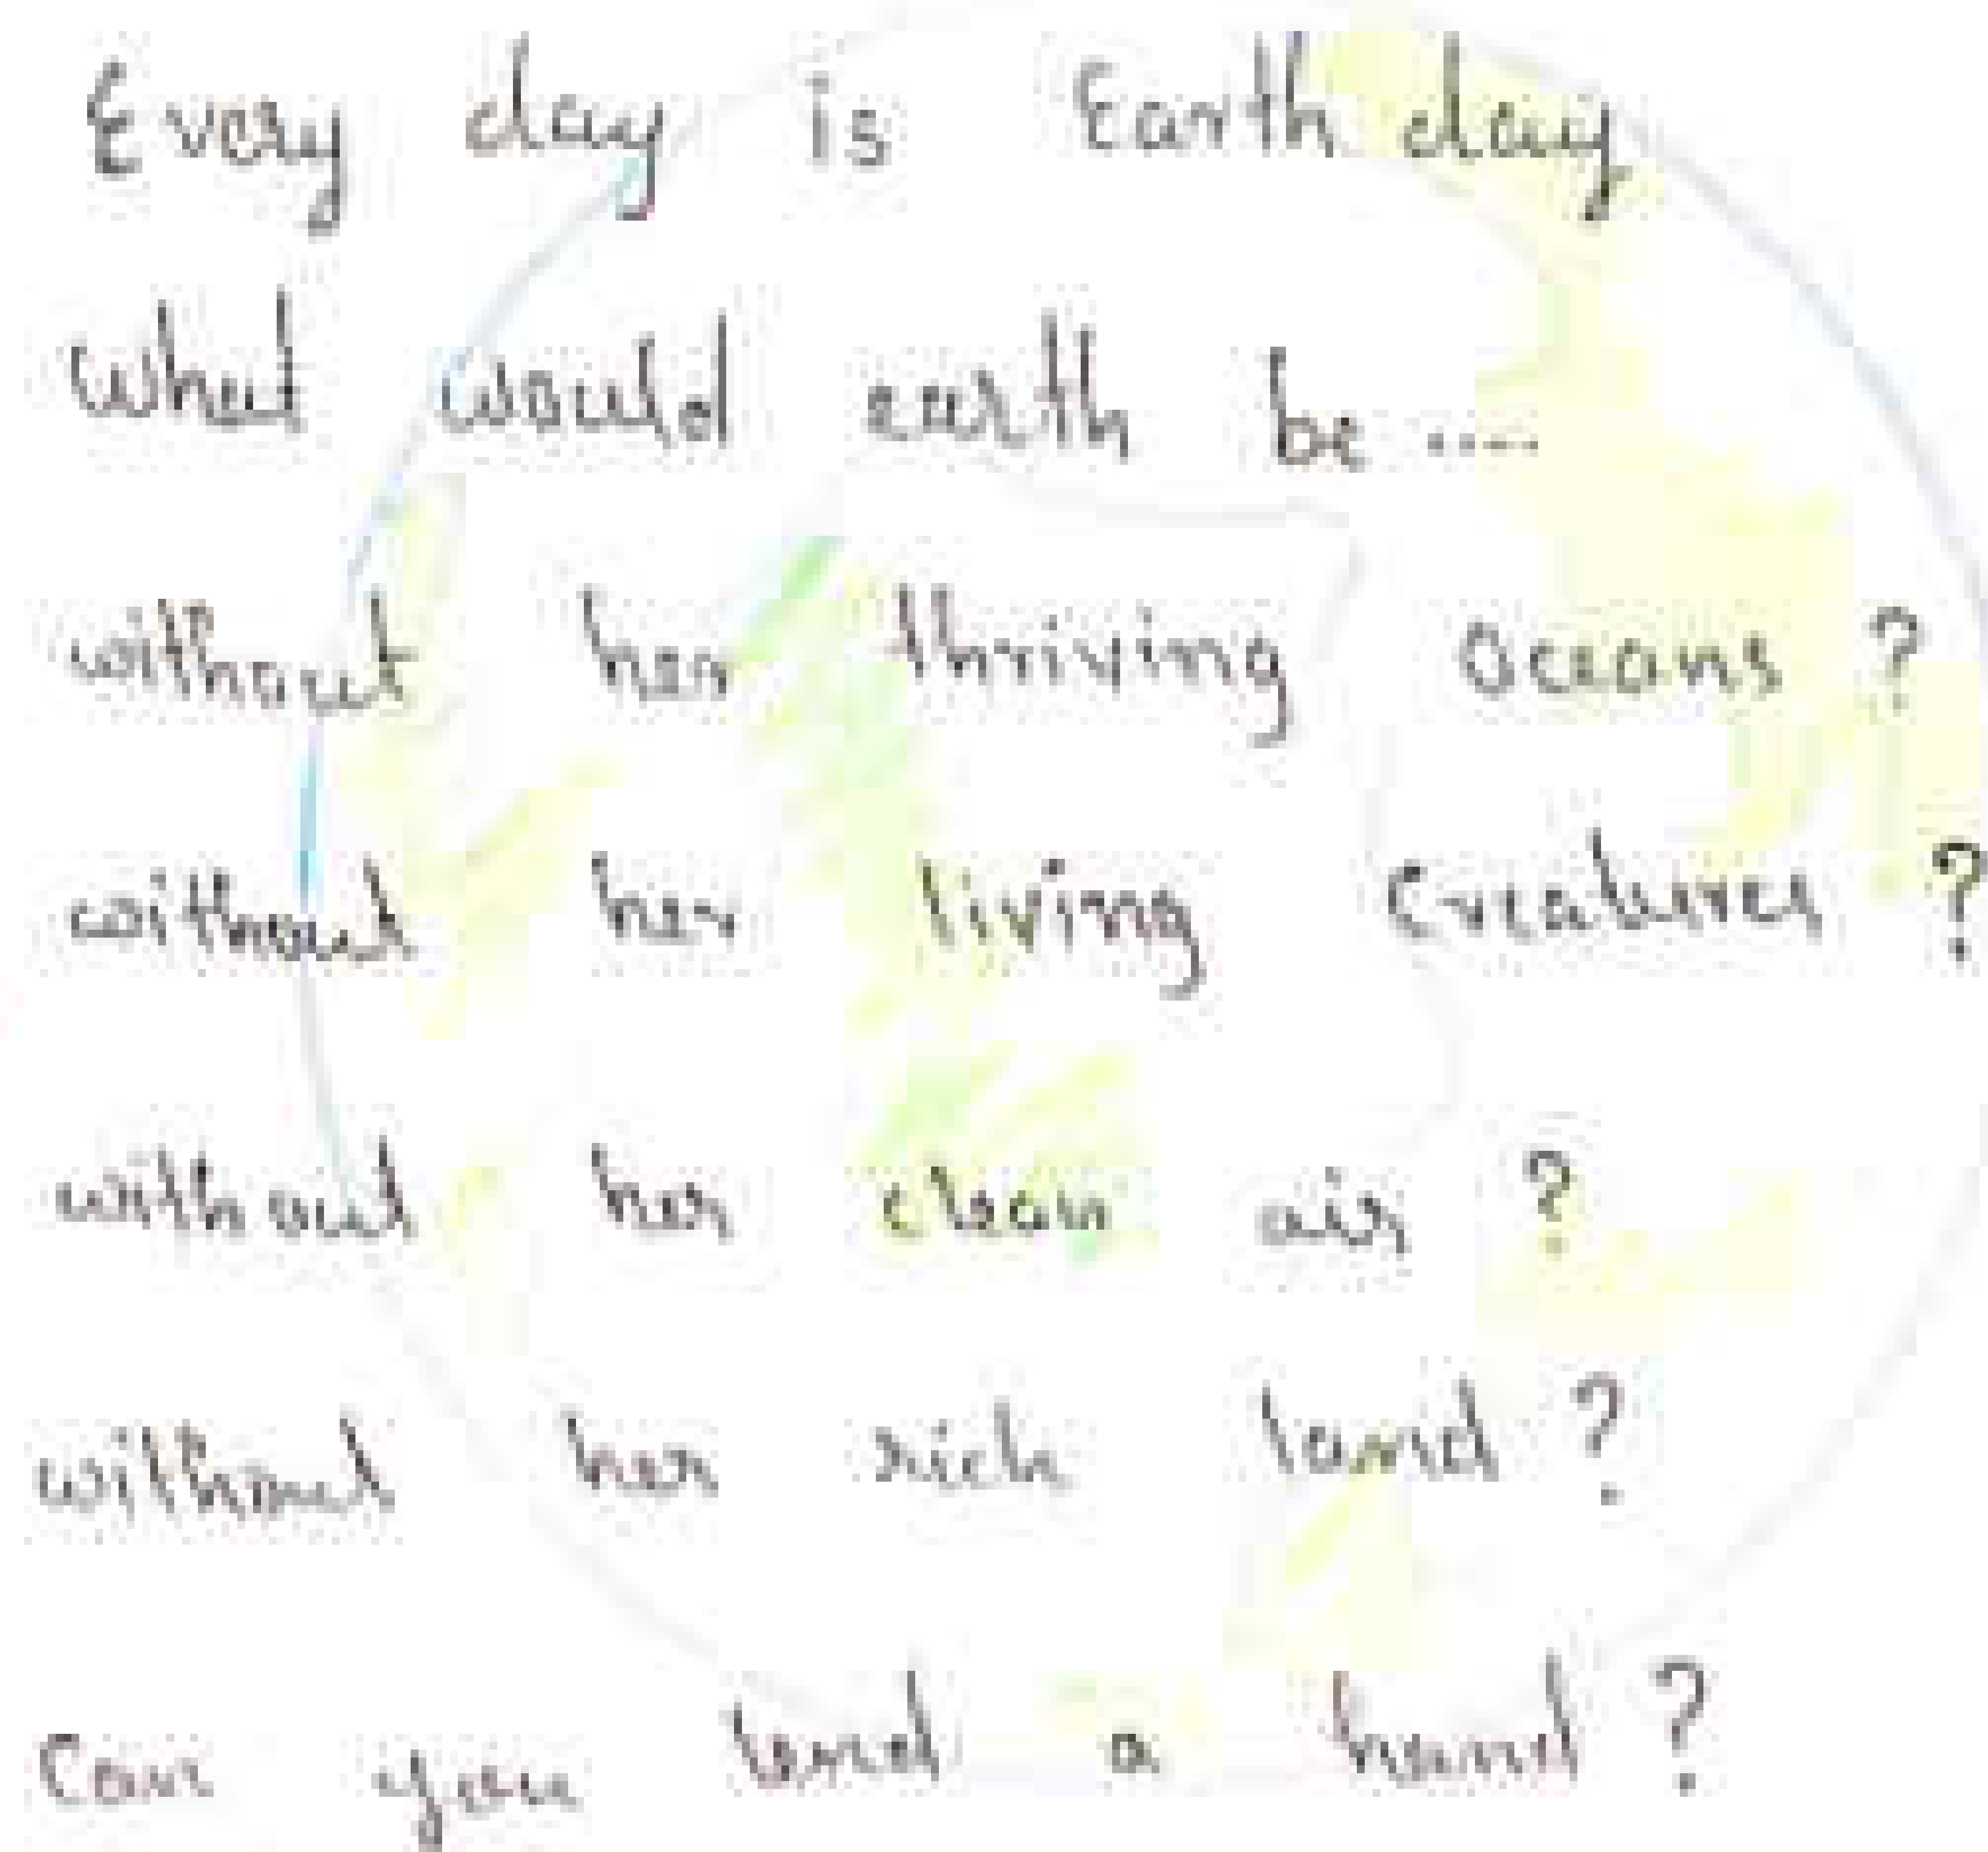 Every day is Earth day
What would earth be ....
without her thriving Oceans ?
without her living Creatures ?
without her clean air ?
without her rich land ?
Can you lend a hand ?